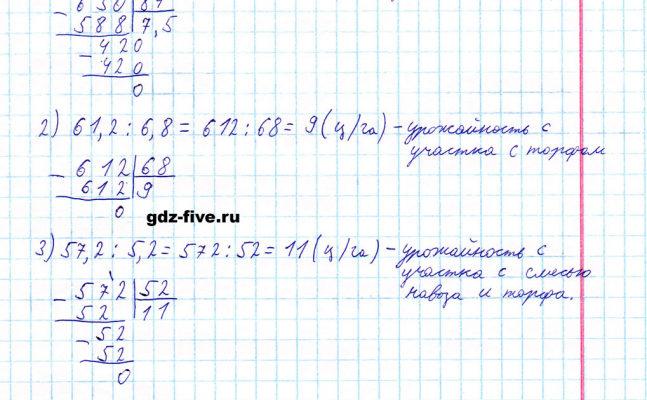 - 630 | 84
588 | 7,5
- 420
420
0
2) 61,2 : 6,8 = 612 : 68 = 9 (ц/га) - урожайность с
участка с торфом
- 612 | 68
612 | 9
0
gdz-five.ru
3) 57,2 : 5,2 = 572 : 52 = 11 (ц/га) - урожайность с
участка с смесью
навоза и торфа.
- 572 | 52
52 | 11
- 52
52
0